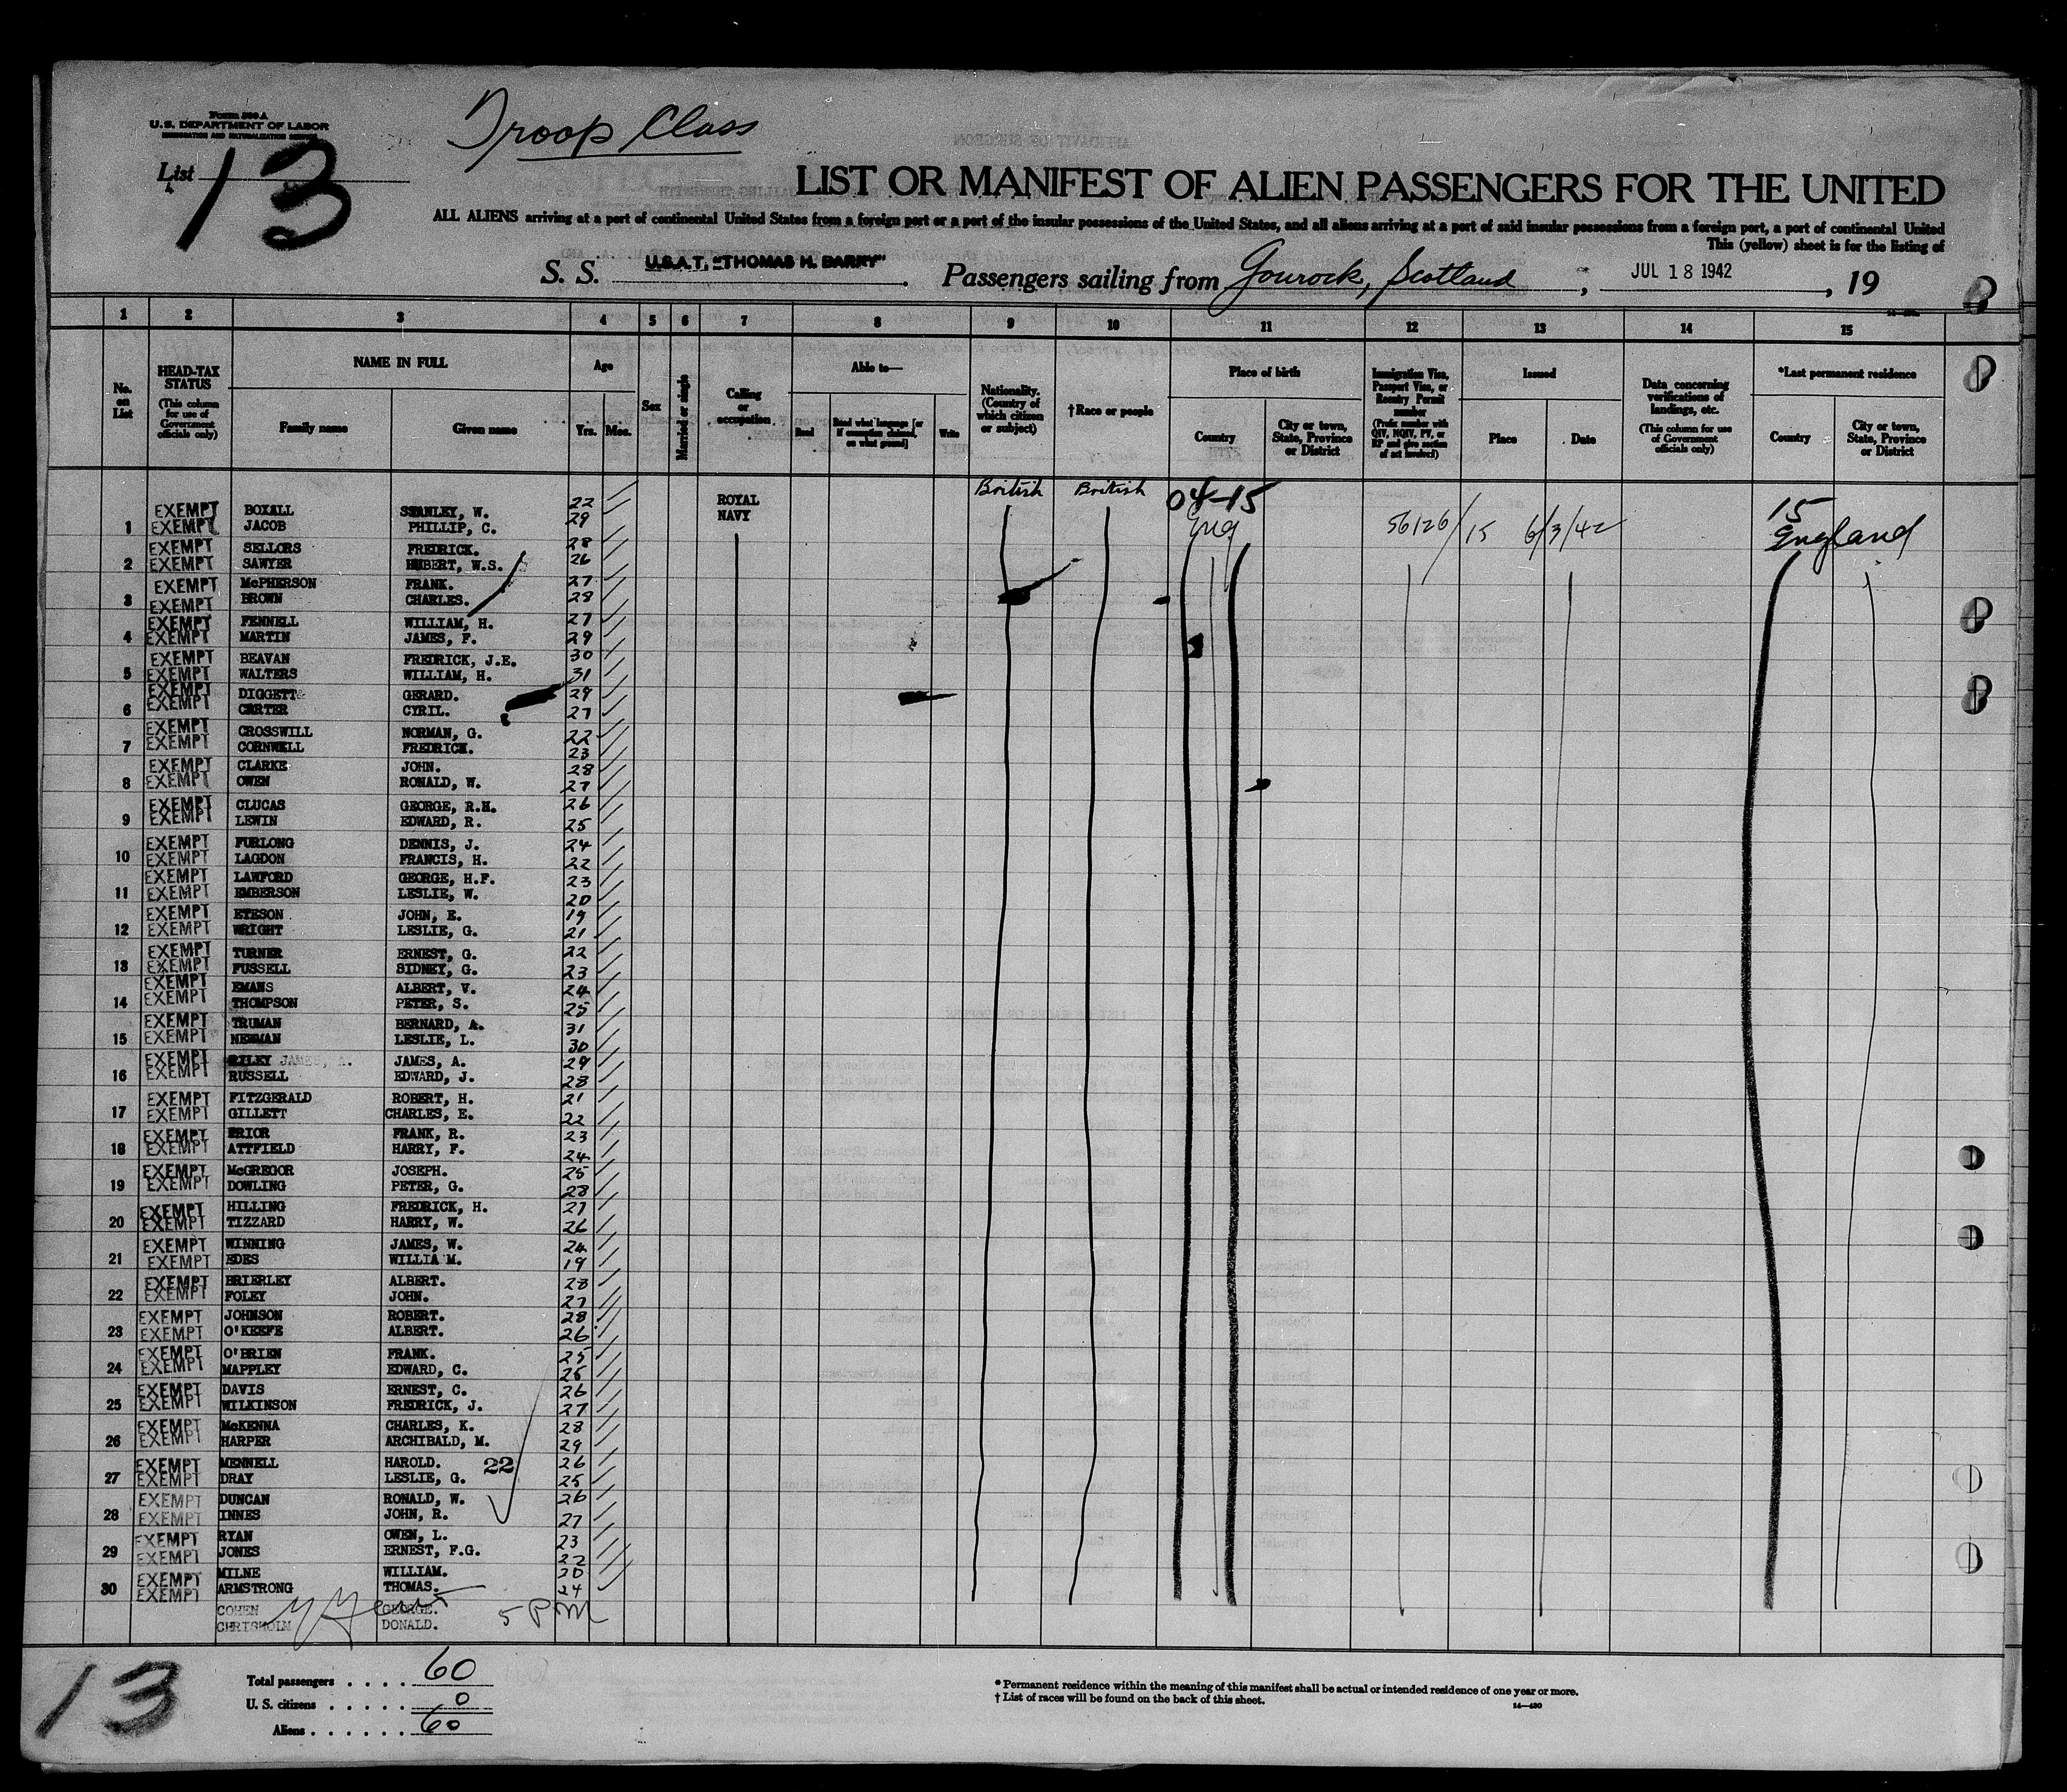 Form 500 A
U.S. DEPARTMENT OF LABOR
IMMIGRATION AND NATURALIZATION SERVICE
Troop Class
List 13
LIST OR MANIFEST OF ALIEN PASSENGERS FOR THE UNITED
ALL ALIENS arriving at a port of continental United States from a foreign port or a port of the insular possessions of the United States, and all aliens arriving at a port of said insular possessions from a foreign port, a port of continental United
This (yellow) sheet is for the listing of
S. S. U.S.A.T. "THOMAS H. BARRY" Passengers sailing from Gourock, Scotland, JUL 18 1942, 19
1 2 3 4 5 6 7 8 9 10 11 12 13 14 15
No. on List
HEAD-TAX STATUS (This column for use of Government officials only)
NAME IN FULL
Family name Given name
Age
Yrs. Mos.
Sex
Married or single
Calling or occupation
Able to—
Read Read what language [or if exemption claimed, on what ground] Write
Nationality. (Country of which citizen or subject)
†Race or people
Place of birth
Country City or town, State, Province or District
Immigration Visa, Passport Visa, or Reentry Permit number (Prefix number with QIV, NQIV, PV, or RP and give section of act involved)
Issued
Place Date
Data concerning verifications of landings, etc. (This column for use of Government officials only)
*Last permanent residence
Country City or town, State, Province or District
British British 04-15
EXEMPT BOXALL STANLEY, W. 22 ROYAL 15
1 EXEMPT JACOB PHILLIP, C. 29 NAVY Eng 56126/15 6/3/42 England
EXEMPT SELLORS FREDRICK. 28
2 EXEMPT SAWYER HUBERT, W.S. 26
EXEMPT McPHERSON FRANK. 27
3 EXEMPT BROWN CHARLES. 28
EXEMPT FENNELL WILLIAM, H. 27
4 EXEMPT MARTIN JAMES, F. 29
EXEMPT BEAVAN FREDRICK, J.E. 30
5 EXEMPT WALTERS WILLIAM, H. 31
EXEMPT DIGGETT GERARD. 29
6 EXEMPT CARTER CYRIL. 27
EXEMPT CROSSWILL NORMAN, G. 22
7 EXEMPT CORNWELL FREDRICK. 23
EXEMPT CLARKE JOHN. 28
8 EXEMPT OWEN RONALD, W. 27
EXEMPT CLUCAS GEORGE, R.H. 26
9 EXEMPT LEWIN EDWARD, R. 25
EXEMPT FURLONG DENNIS, J. 24
10 EXEMPT LAGDON FRANCIS, H. 22
EXEMPT LAWFORD GEORGE, H.F. 23
11 EXEMPT EMBERSON LESLIE, W. 20
EXEMPT ETESON JOHN, E. 19
12 EXEMPT WRIGHT LESLIE, G. 21
EXEMPT TURNER ERNEST, G. 22
13 EXEMPT FUSSELL SIDNEY, G. 23
EXEMPT EMANS ALBERT, V. 24
14 EXEMPT THOMPSON PETER, S. 25
EXEMPT TRUMAN BERNARD, A. 31
15 EXEMPT NEWMAN LESLIE, L. 30
EXEMPT RILEY JAMES, A. JAMES, A. 29
16 EXEMPT RUSSELL EDWARD, J. 28
EXEMPT FITZGERALD ROBERT, H. 21
17 EXEMPT GILLETT CHARLES, E. 22
EXEMPT PRIOR FRANK, R. 23
18 EXEMPT ATTFIELD HARRY, F. 24
EXEMPT McGREGOR JOSEPH. 25
19 EXEMPT DOWLING PETER, G. 28
EXEMPT HILLING FREDRICK, H. 27
20 EXEMPT TIZZARD HARRY, W. 26
EXEMPT WINNING JAMES, W. 24
21 EXEMPT EDES WILLIAM. 19
EXEMPT BRIERLEY ALBERT. 28
22 EXEMPT FOLEY JOHN. 27
EXEMPT JOHNSON ROBERT. 28
23 EXEMPT O'KEEFE ALBERT. 26
EXEMPT O'BRIEN FRANK. 25
24 EXEMPT MAPPLEY EDWARD, C. 25
EXEMPT DAVIS ERNEST, C. 26
25 EXEMPT WILKINSON FREDRICK, J. 27
EXEMPT McKENNA CHARLES, K. 28
26 EXEMPT HARPER ARCHIBALD, M. 29
EXEMPT MENNELL HAROLD. 22 26
27 EXEMPT DRAY LESLIE, G. 25
EXEMPT DUNCAN RONALD, W. 26
28 EXEMPT INNES JOHN, R. 27
EXEMPT RYAN OWEN, L. 23
29 EXEMPT JONES ERNEST, F.G. 22
EXEMPT MILNE WILLIAM. 20
30 EXEMPT ARMSTRONG THOMAS. 24
COHEN GEORGE. 5 PM
CHRISHOLM DONALD.
13
Total passengers . . . . 60
U. S. citizens . . . . . 0
Aliens . . . . . . 60
* Permanent residence within the meaning of this manifest shall be actual or intended residence of one year or more.
† List of races will be found on the back of this sheet.
14—430